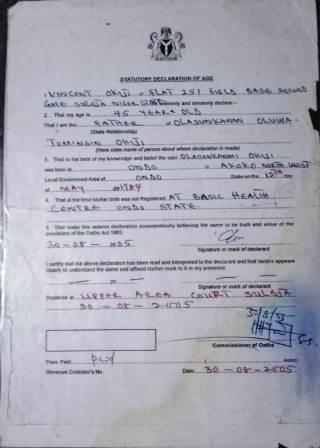 STATUTORY DECLARATION OF AGE
I VINCENT OKIJI OF FLAT 251 FIELD BASE SECOND
GATE SULEJA NIGER STATE solemnly and sincerely declare:-
2. That my age is 45 YEARS OLD
That I am the FATHER OLASUNKANMI OLUWA-
(State Relationship)
TOMINSIN OKIJI
(Here state name of person about whom declaration is made)
3. That to the best of my knowledge and belief the said OLASUNKANMI OKIJI
was born at ONDO AKOKO NORTH WEST
Local Government Area of ONDO State on the 12th day
of MAY 1984
4. That at the time his/her birth was not Registered. AT BASIC HEALTH
CENTRE ONDO STATE
5. That I make this solemn declaration conscientiously believing same to be truth and by virtue of the
provisions of the Oaths Act 1963.
30-08-2005
Signature or mark of declarant
I certify that the above declaration has been read and interpreted to the declarant and that he/she appears
clearly to understand the same and affixed his/her mark to it in my presence
20
Signature or mark of declarant.
Declared at UPPER AREA COURT SULEJA
30-08-2005
Commissioner of Oaths
Fees Paid: paid
Revenue Collector's No. Date: 30-08-2005.